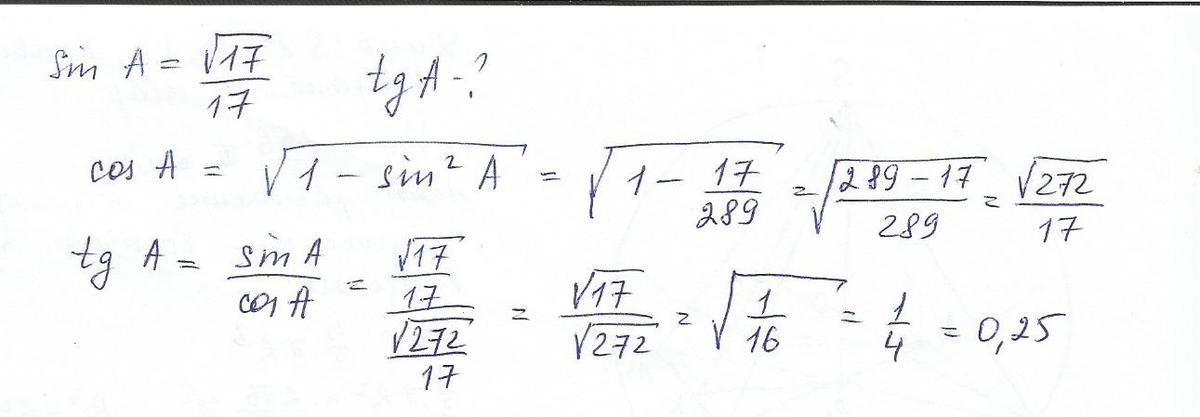 sin A = √17/17   tg A - ?
cos A = √(1 - sin² A) = √(1 - 17/289) = √((289 - 17)/289) = √272/17
tg A = sin A/cos A = (√17/17)/(√272/17) = √17/√272 = √(1/16) = 1/4 = 0,25